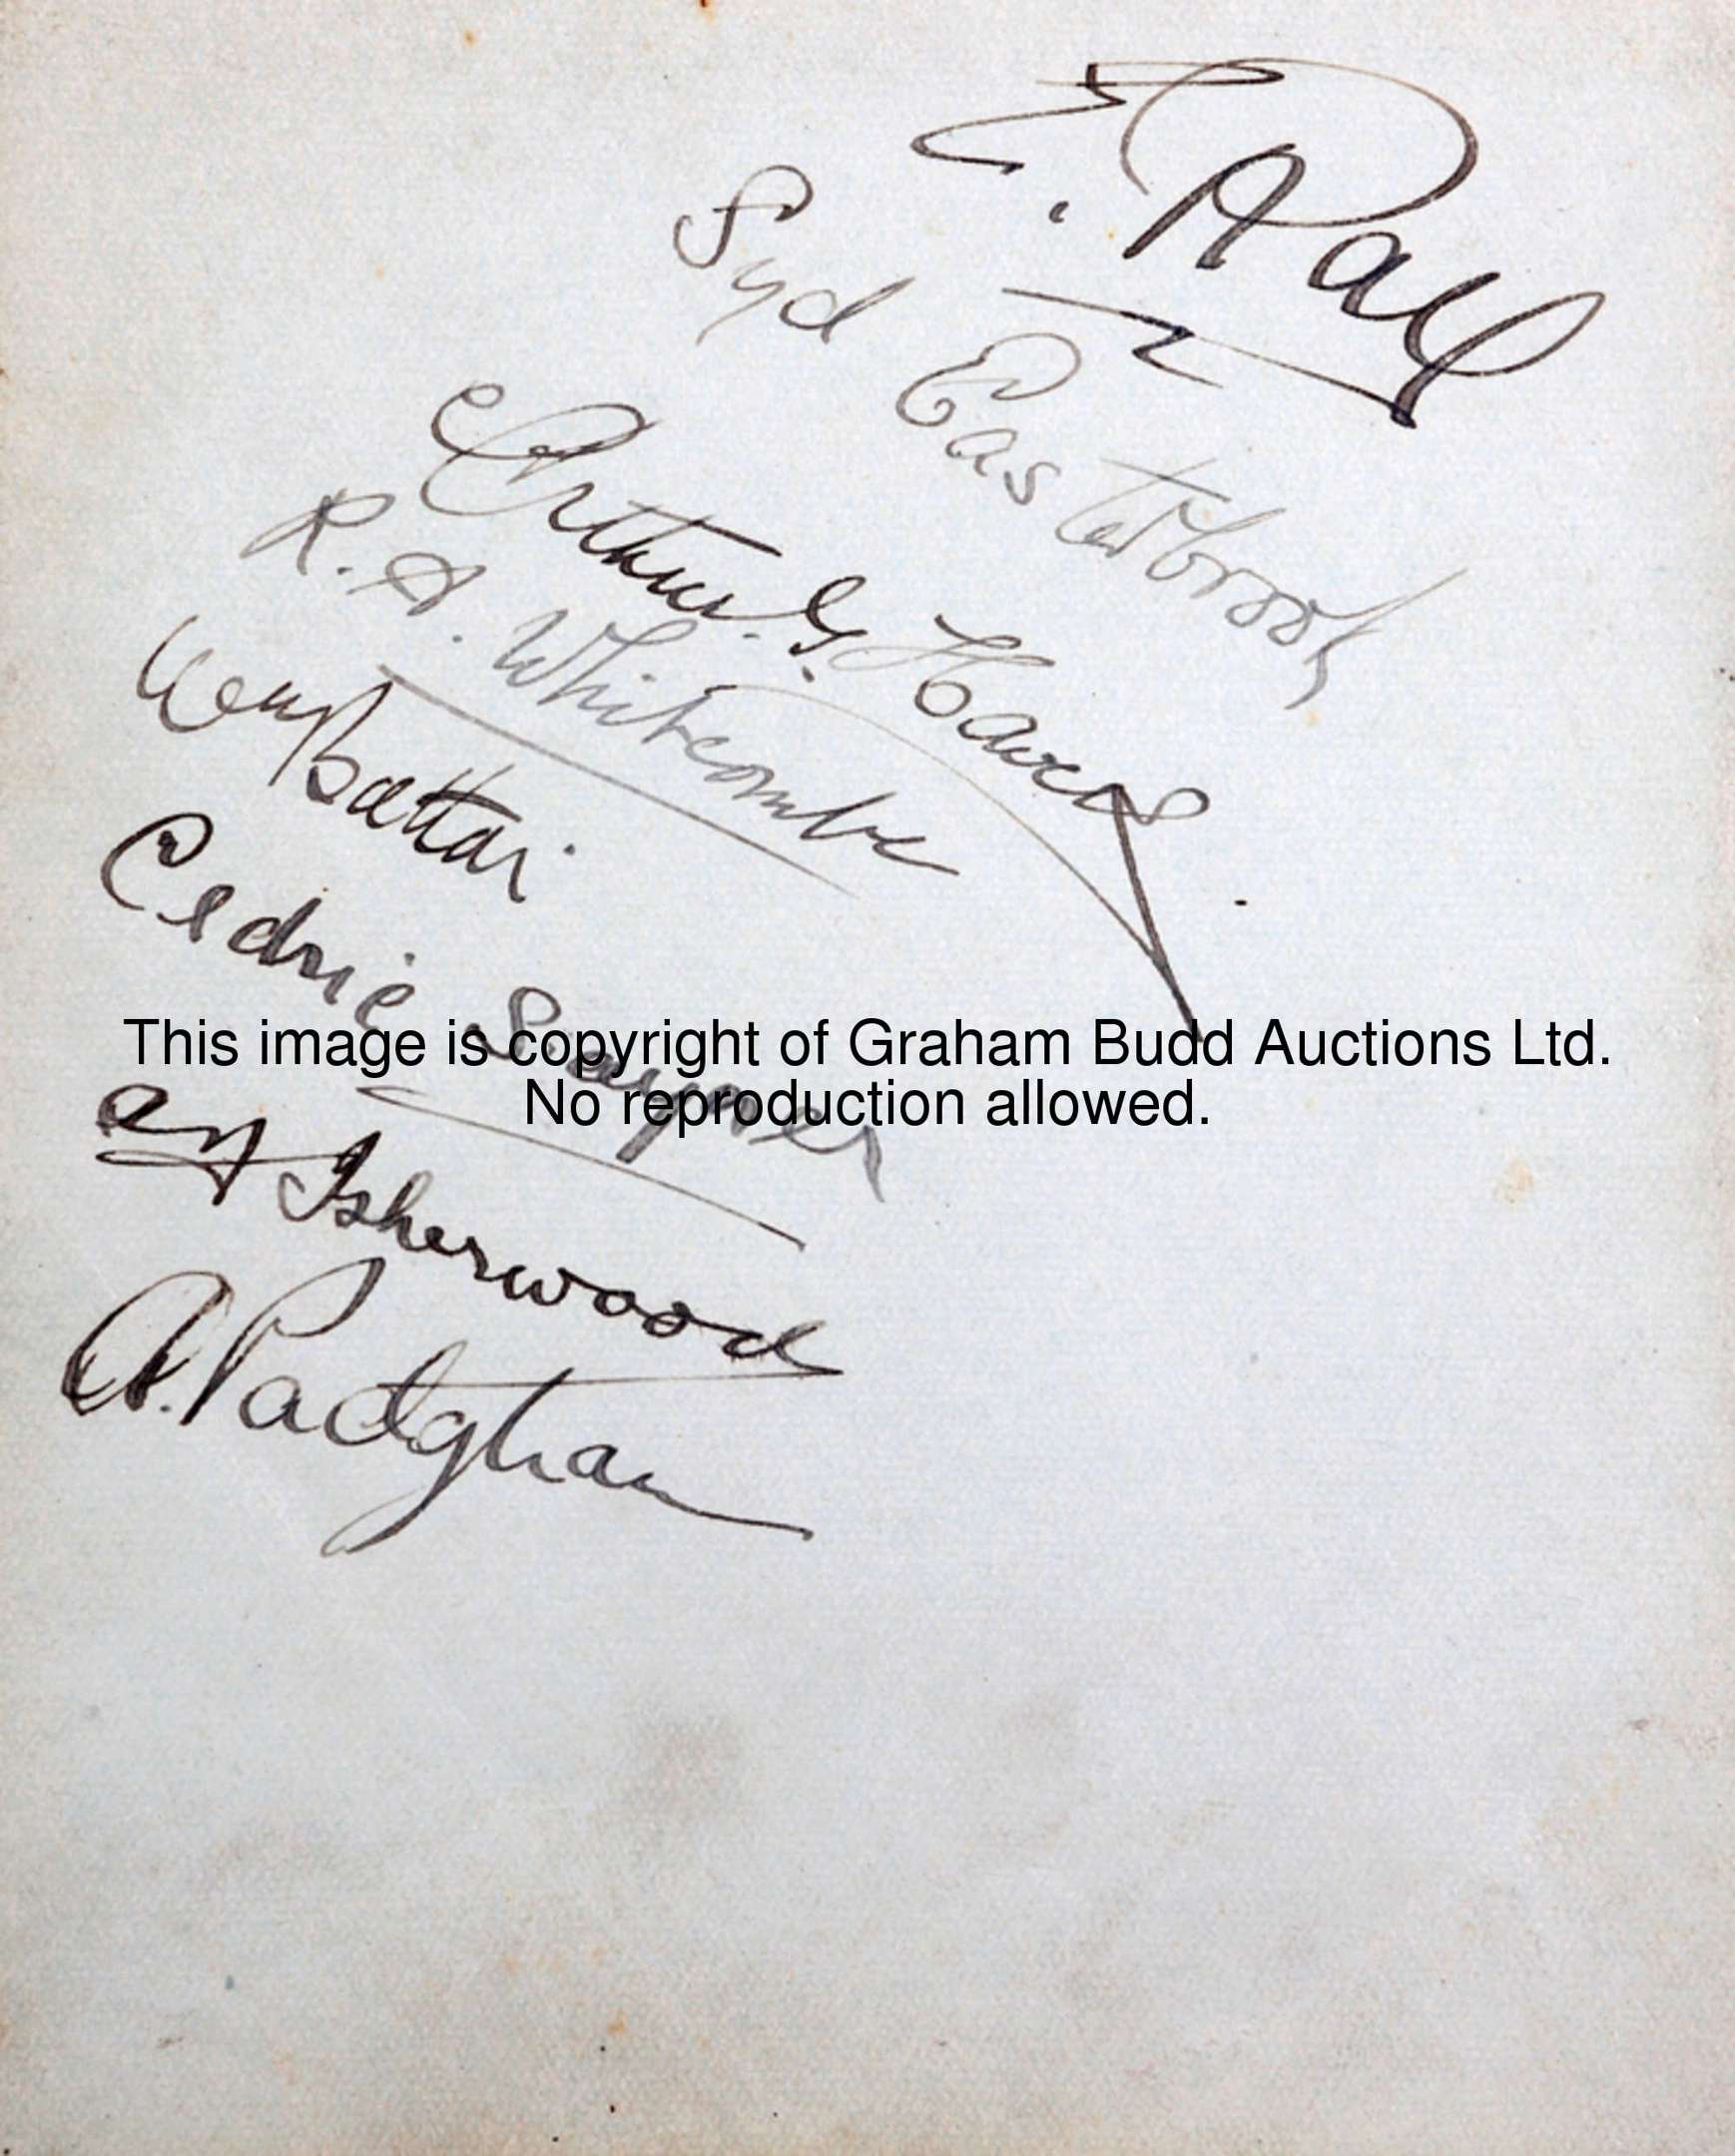 E. R. Hall
Syd Easterbrook
Arthur. G. Havers.
R. A. Whitcombe
Cedric Sayner
Isherwood
A. Padgham
This image is copyright of Graham Budd Auctions Ltd.
No reproduction allowed.